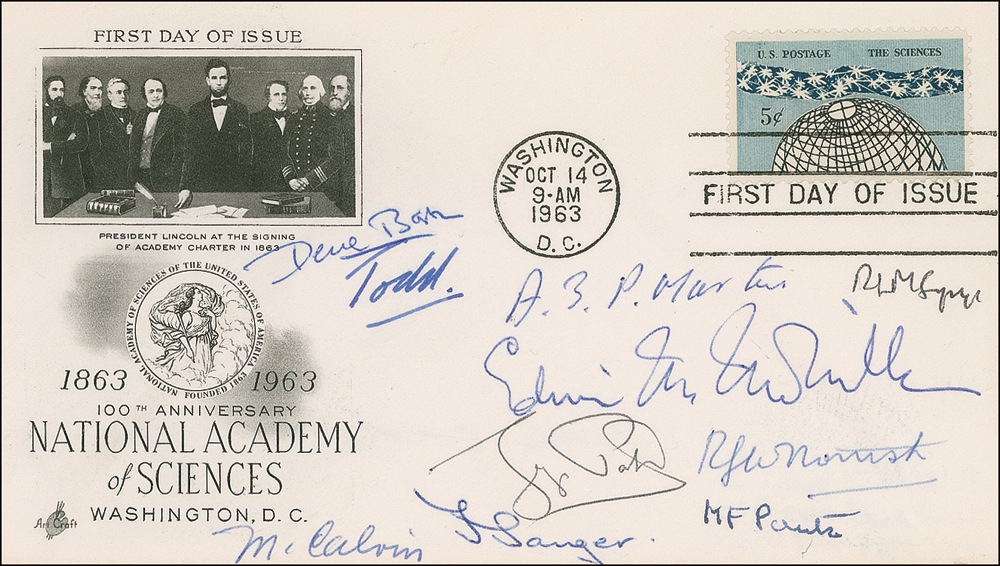 FIRST DAY OF ISSUE
PRESIDENT LINCOLN AT THE SIGNING
OF ACADEMY CHARTER IN 1863
NATIONAL ACADEMY OF SCIENCES OF THE UNITED STATES OF AMERICA
FOUNDED 1863
1863 1963
100TH ANNIVERSARY
NATIONAL ACADEMY
of SCIENCES
WASHINGTON, D.C.
Art Craft
WASHINGTON
OCT 14
9-AM
1963
D.C.
U.S. POSTAGE THE SCIENCES
5¢
FIRST DAY OF ISSUE
Todd.
A. J. P. Martin
RLM Synge
Edwin M. McMillan
RGW Norrish
MF
M. Calvin
F Sanger.